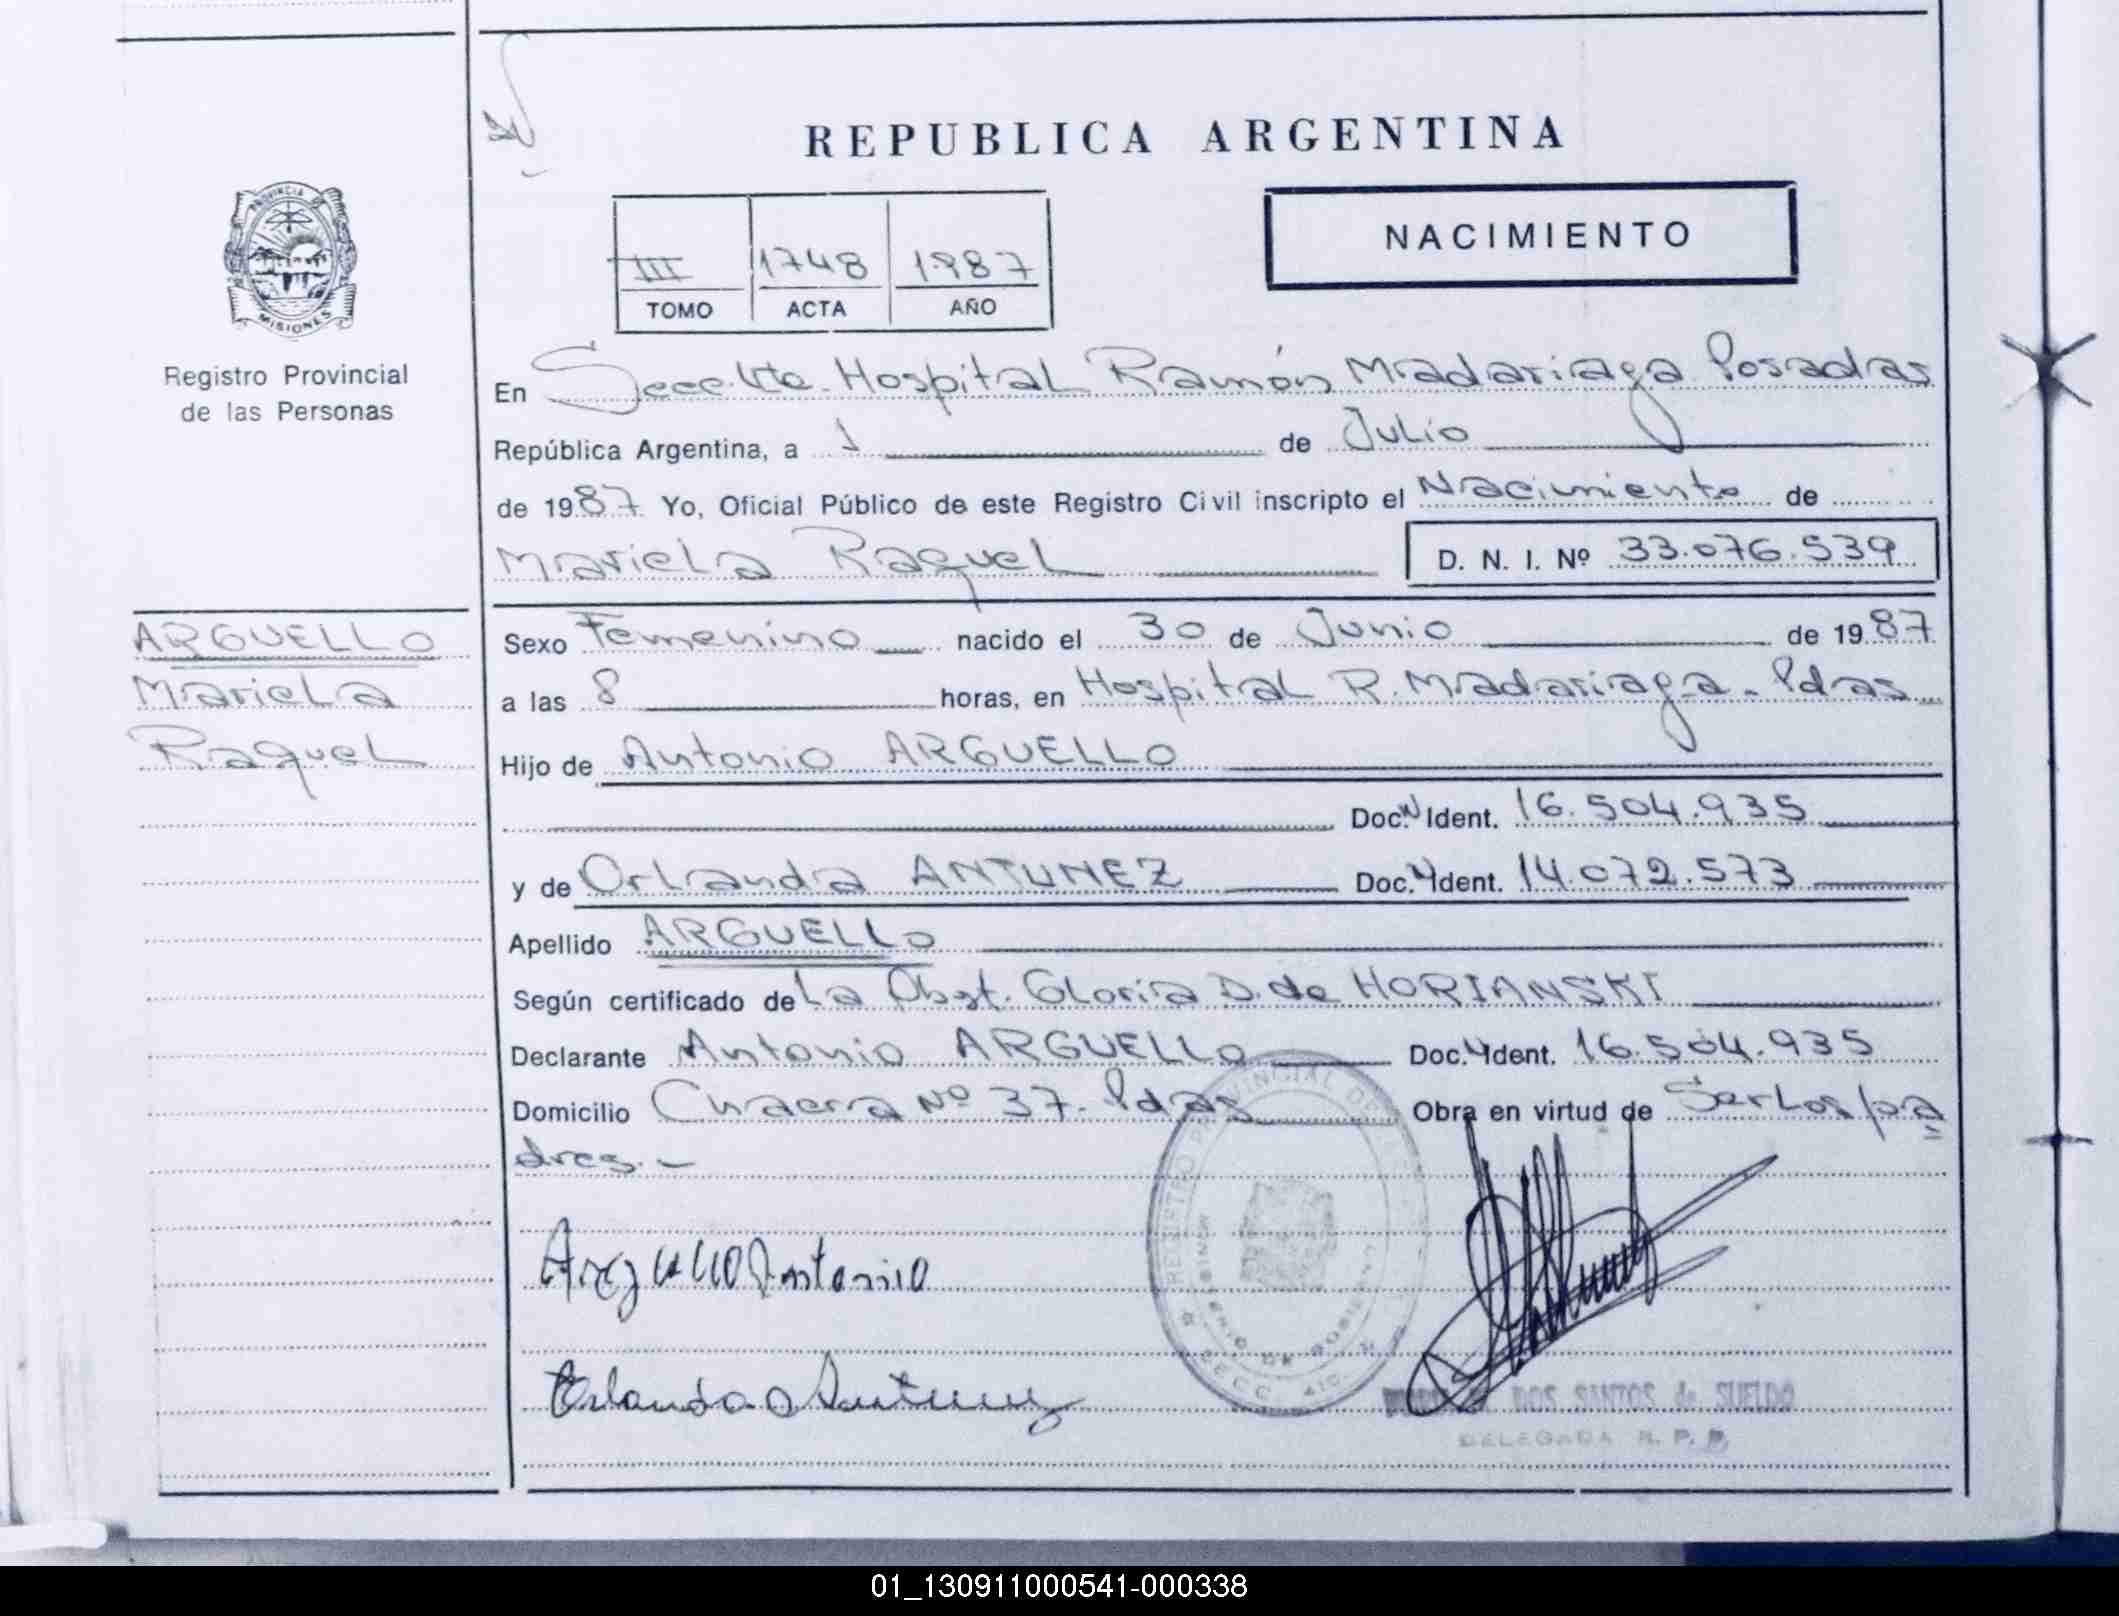 REPUBLICA ARGENTINA
NACIMIENTO
III 1748 1987
TOMO ACTA AÑO
PROVINCIA DE
MISIONES
Registro Provincial
de las Personas
En Secc. Hospital Ramón Madariaga Posadas
República Argentina, a 1 de Julio
de 1987 Yo, Oficial Público de este Registro Civil inscripto el Nacimiento de
Mariela Raquel D. N. I. Nº 33.076.539
ARGUELLO
Mariela
Raquel
Sexo Femenino nacido el 30 de Junio de 1987
a las 8 horas, en Hospital R. Madariaga - Pdas
Hijo de Antonio ARGUELLO
Doc. N Ident. 16.504.935
y de Orlanda ANTUNEZ Doc. Ident. 14.072.573
Apellido ARGUELLO
Según certificado de La Obst. Gloria D. de HORIANSKI
Declarante Antonio ARGUELLO Doc. Ident. 16.504.935
Domicilio Chacra Nº 37 - Pdas Obra en virtud de Ser los pa
dres. -
Arguello Antonio
Orlanda Antunez
REGISTRO PROVINCIAL DE
MINISTERIO DE GOBIERNO
SECC. 4TO
DOS SANTOS de SUELDO
DELEGADA R. P. P.
01_130911000541-000338